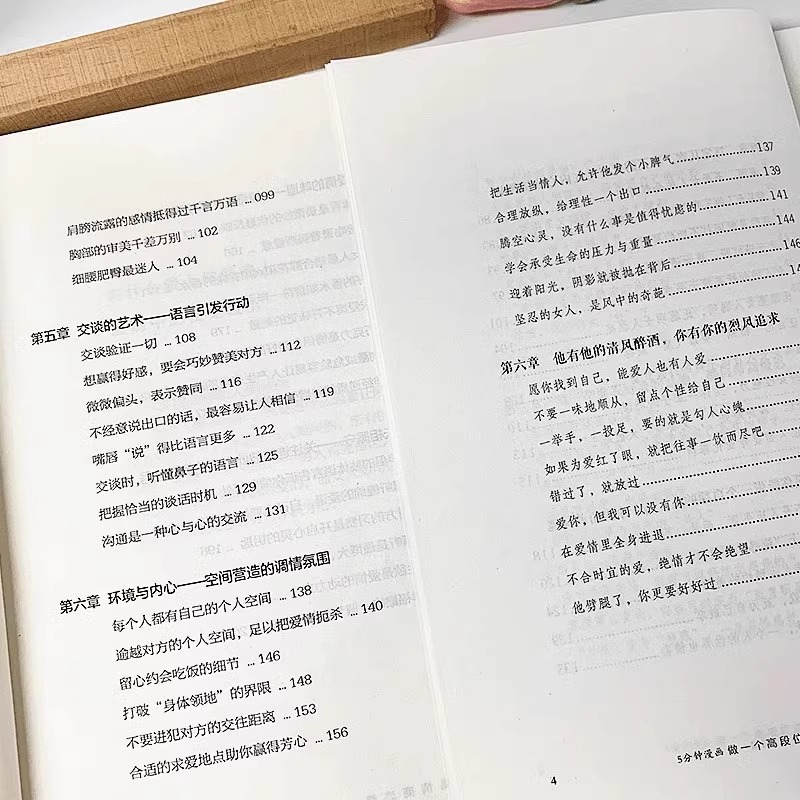 肩膀流露的感情抵得过千言万语 ... 099
胸部的审美千差万别 ... 102
细腰肥臀最迷人 ... 104
第五章 交谈的艺术——语言引发行动
交谈验证一切 ... 108
想赢得好感，要会巧妙赞美对方 ... 112
微微偏头，表示赞同 ... 116
不经意说出口的话，最容易让人相信 ... 119
嘴唇“说”得比语言更多 ... 122
交谈时，听懂鼻子的语言 ... 125
把握恰当的谈话时机 ... 129
沟通是一种心与心的交流 ... 131
第六章 环境与内心——空间营造的调情氛围
每个人都有自己的个人空间 ... 138
逾越对方的个人空间，足以把爱情扼杀 ... 140
留心约会吃饭的细节 ... 146
打破“身体领地”的界限 ... 148
不要进犯对方的交往距离 ... 153
合适的求爱地点助你赢得芳心 ... 156
把生活当情人，允许他发个小脾气 ... 137
合理放纵，给理性一个出口 ... 139
腾空心灵，没有什么事是值得忧虑的 ... 141
学会承受生命的压力与重量 ... 144
迎着阳光，阴影就被抛在背后 ... 146
坚忍的女人，是风中的奇葩 ... 14
第六章 他有他的清风醉酒，你有你的烈风追求
愿你找到自己，能爱人也有人爱
不要一味地顺从，留点个性给自己
一举手，一投足，要的就是勾人心魄
如果为爱红了眼，就把往事一饮而尽吧
错过了，就放过
爱你，但我可以没有你
在爱情里全身进退
不合时宜的爱，绝情才不会绝望
他劈腿了，你更要好好过
4
5分钟漫画 做一个高段位